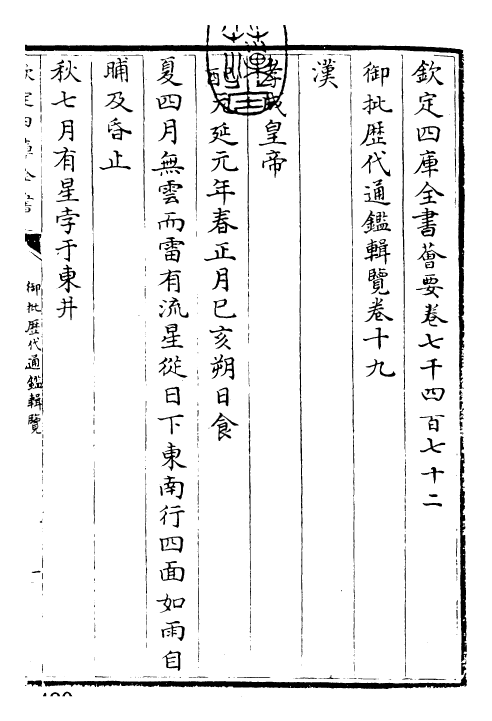 欽定四庫全書薈要卷七千四百七十二
御批歷代通鑑輯覽卷十九
漢
孝成皇帝
元延元年春正月己亥朔日食
夏四月無雲而雷有流星從日下東南行四面如雨自
晡及昏止
秋七月有星孛于東井
欽定四庫全書
御批歷代通鑑輯覽
一